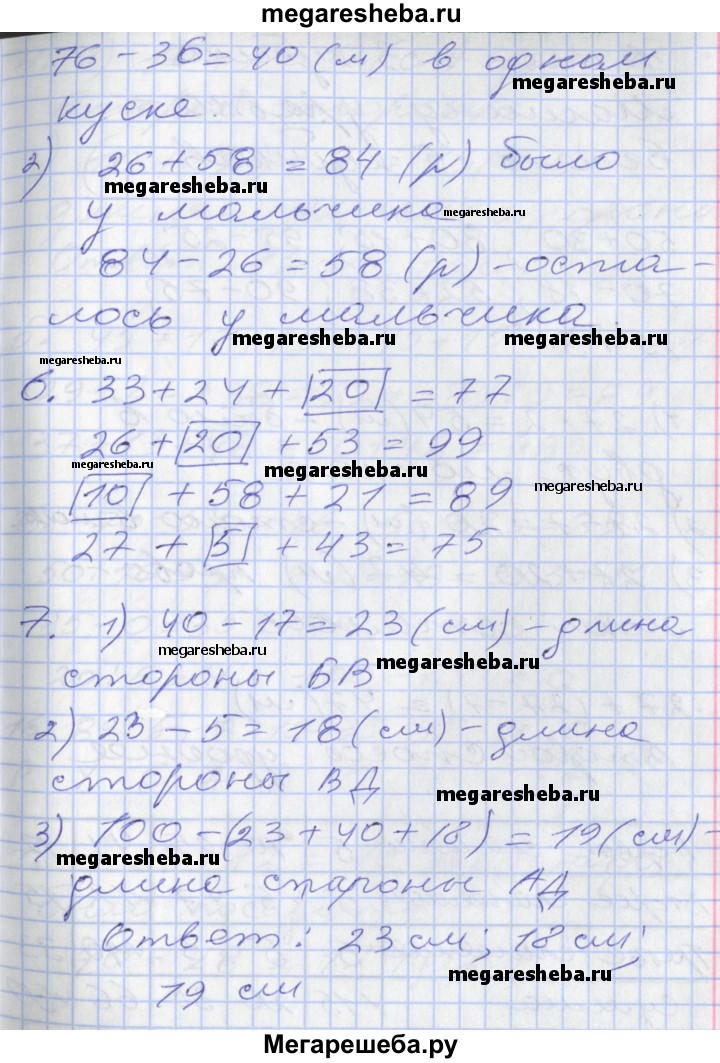 megaresheba.ru
76 - 36 = 40 (м) в одном
megaresheba.ru
куске.
2) 26 + 58 = 84 (р) было
megaresheba.ru
у мальчика megaresheba.ru
84 - 26 = 58 (р) - оста-
лось у мальчика.
megaresheba.ru megaresheba.ru
megaresheba.ru
6. 33 + 24 + 20 = 77
26 + 20 + 53 = 99
megaresheba.ru megaresheba.ru
10 + 58 + 21 = 89 megaresheba.ru
27 + 5 + 43 = 75
7. 1) 40 - 17 = 23 (см) - длина
megaresheba.ru
стороны БВ megaresheba.ru
2) 23 - 5 = 18 (см) - длина
стороны ВД megaresheba.ru
3) 100 - (23 + 40 + 18) = 19 (см) -
megaresheba.ru
длина стороны АД
Ответ: 23 см; 18 см;
megaresheba.ru
19 см
Мегарешеба.ру